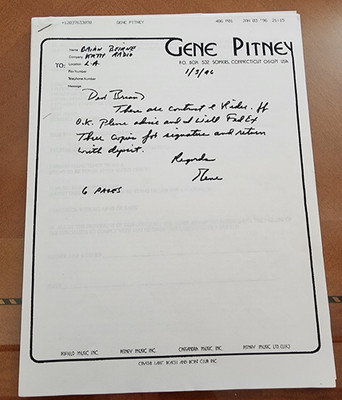 GENE PITNEY
JAN 03 '96
GENE PITNEY
P.O. BOX 532 SOMERS, CONNECTICUT 06071 USA
TO:
Name BRIAN BEIRNE
Company KRTH RADIO
Location L.A.
Fax Number
Telephone Number
Message
1/3/96
Dear Brian)
These are contract & Rider. If
O.K. Please advise and I will FedEx
Three copies for signature and return
with deposit.
Regards
Gene
6 PAGES
PITFIELD MUSIC INC. PITNEY MUSIC INC. CATANDRA MUSIC INC. PITNEY MUSIC LTD. (U.K.)
CRYSTAL LAKE BEACH AND BOAT CLUB INC.